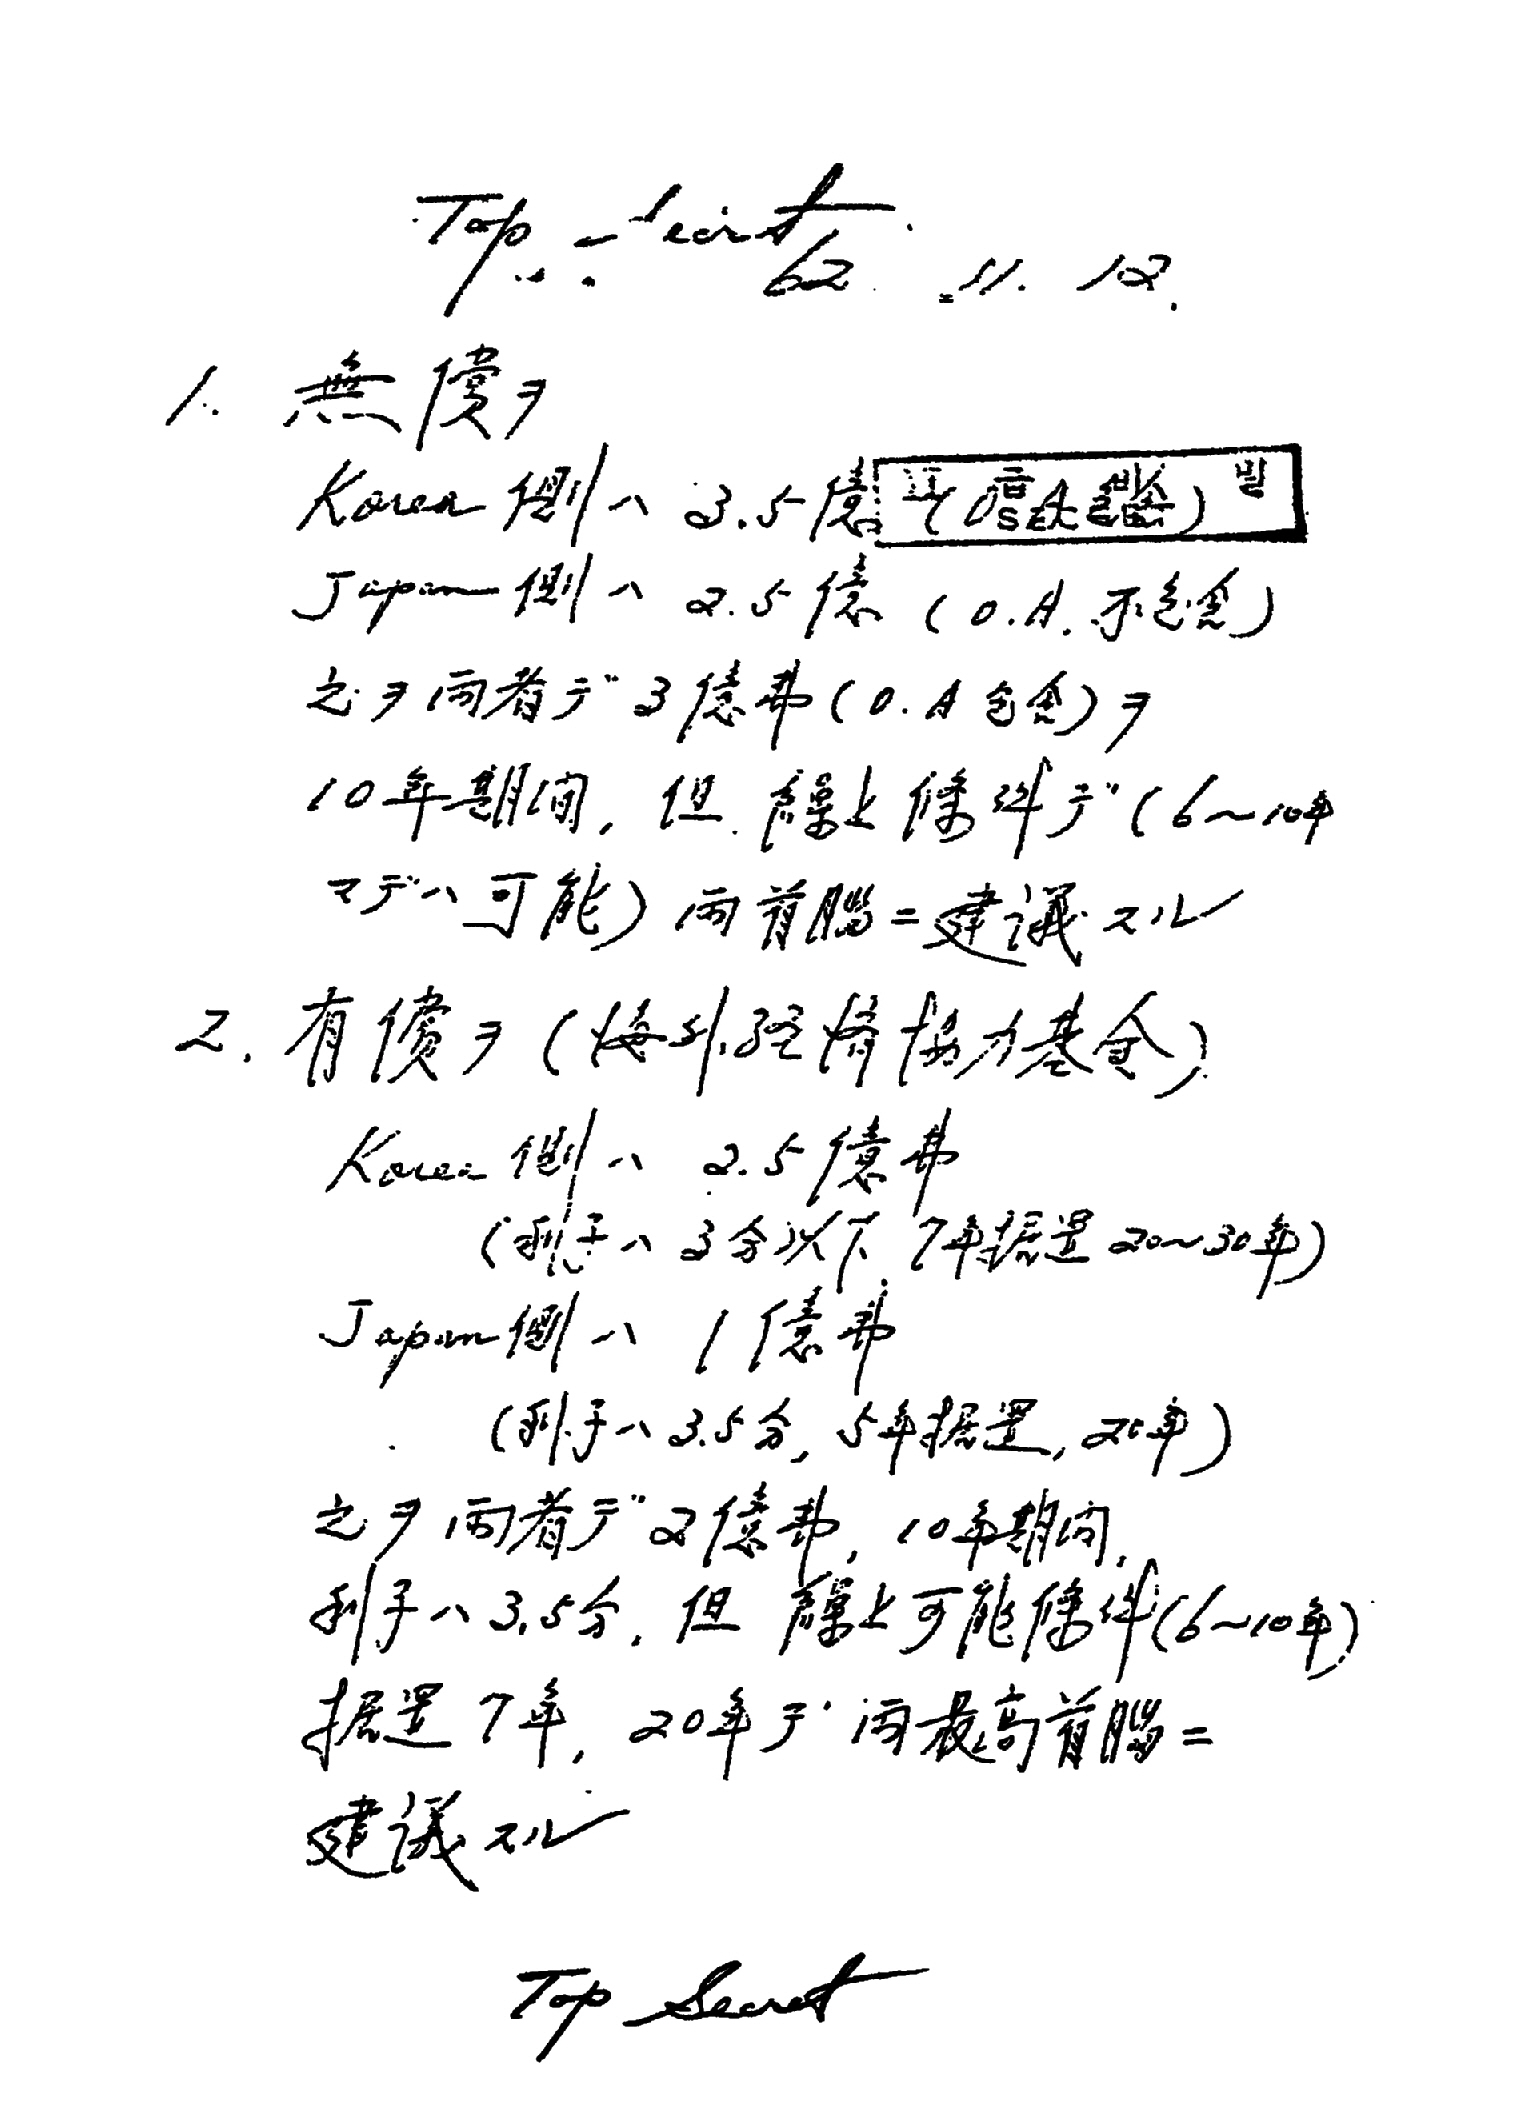 Top Secret
62. 11. 12.
1. 無償ヲ
Korea側ハ 3.5億 (O.A.包含)
Japan側ハ 2.5億 (O.A.不包含)
之ヲ両者デ 3億弗(O.A包含)ヲ
10年期間, 但 繰上條件デ(6〜10年
マデハ可能) 両首腦ニ建議スル
2. 有償ヲ(海外経済協力基金)
Korea側ハ 2.5億弗
(利子ハ 3分以下, 7年据置 20〜30年)
Japan側ハ 1億弗
(利子ハ 3.5分, 5年据置, 20年)
之ヲ両者デ 2億弗, 10年期間,
利子ハ 3.5分, 但 繰上可能條件(6〜10年)
据置 7年, 20年デ 両最高首腦ニ
建議スル
Top Secret